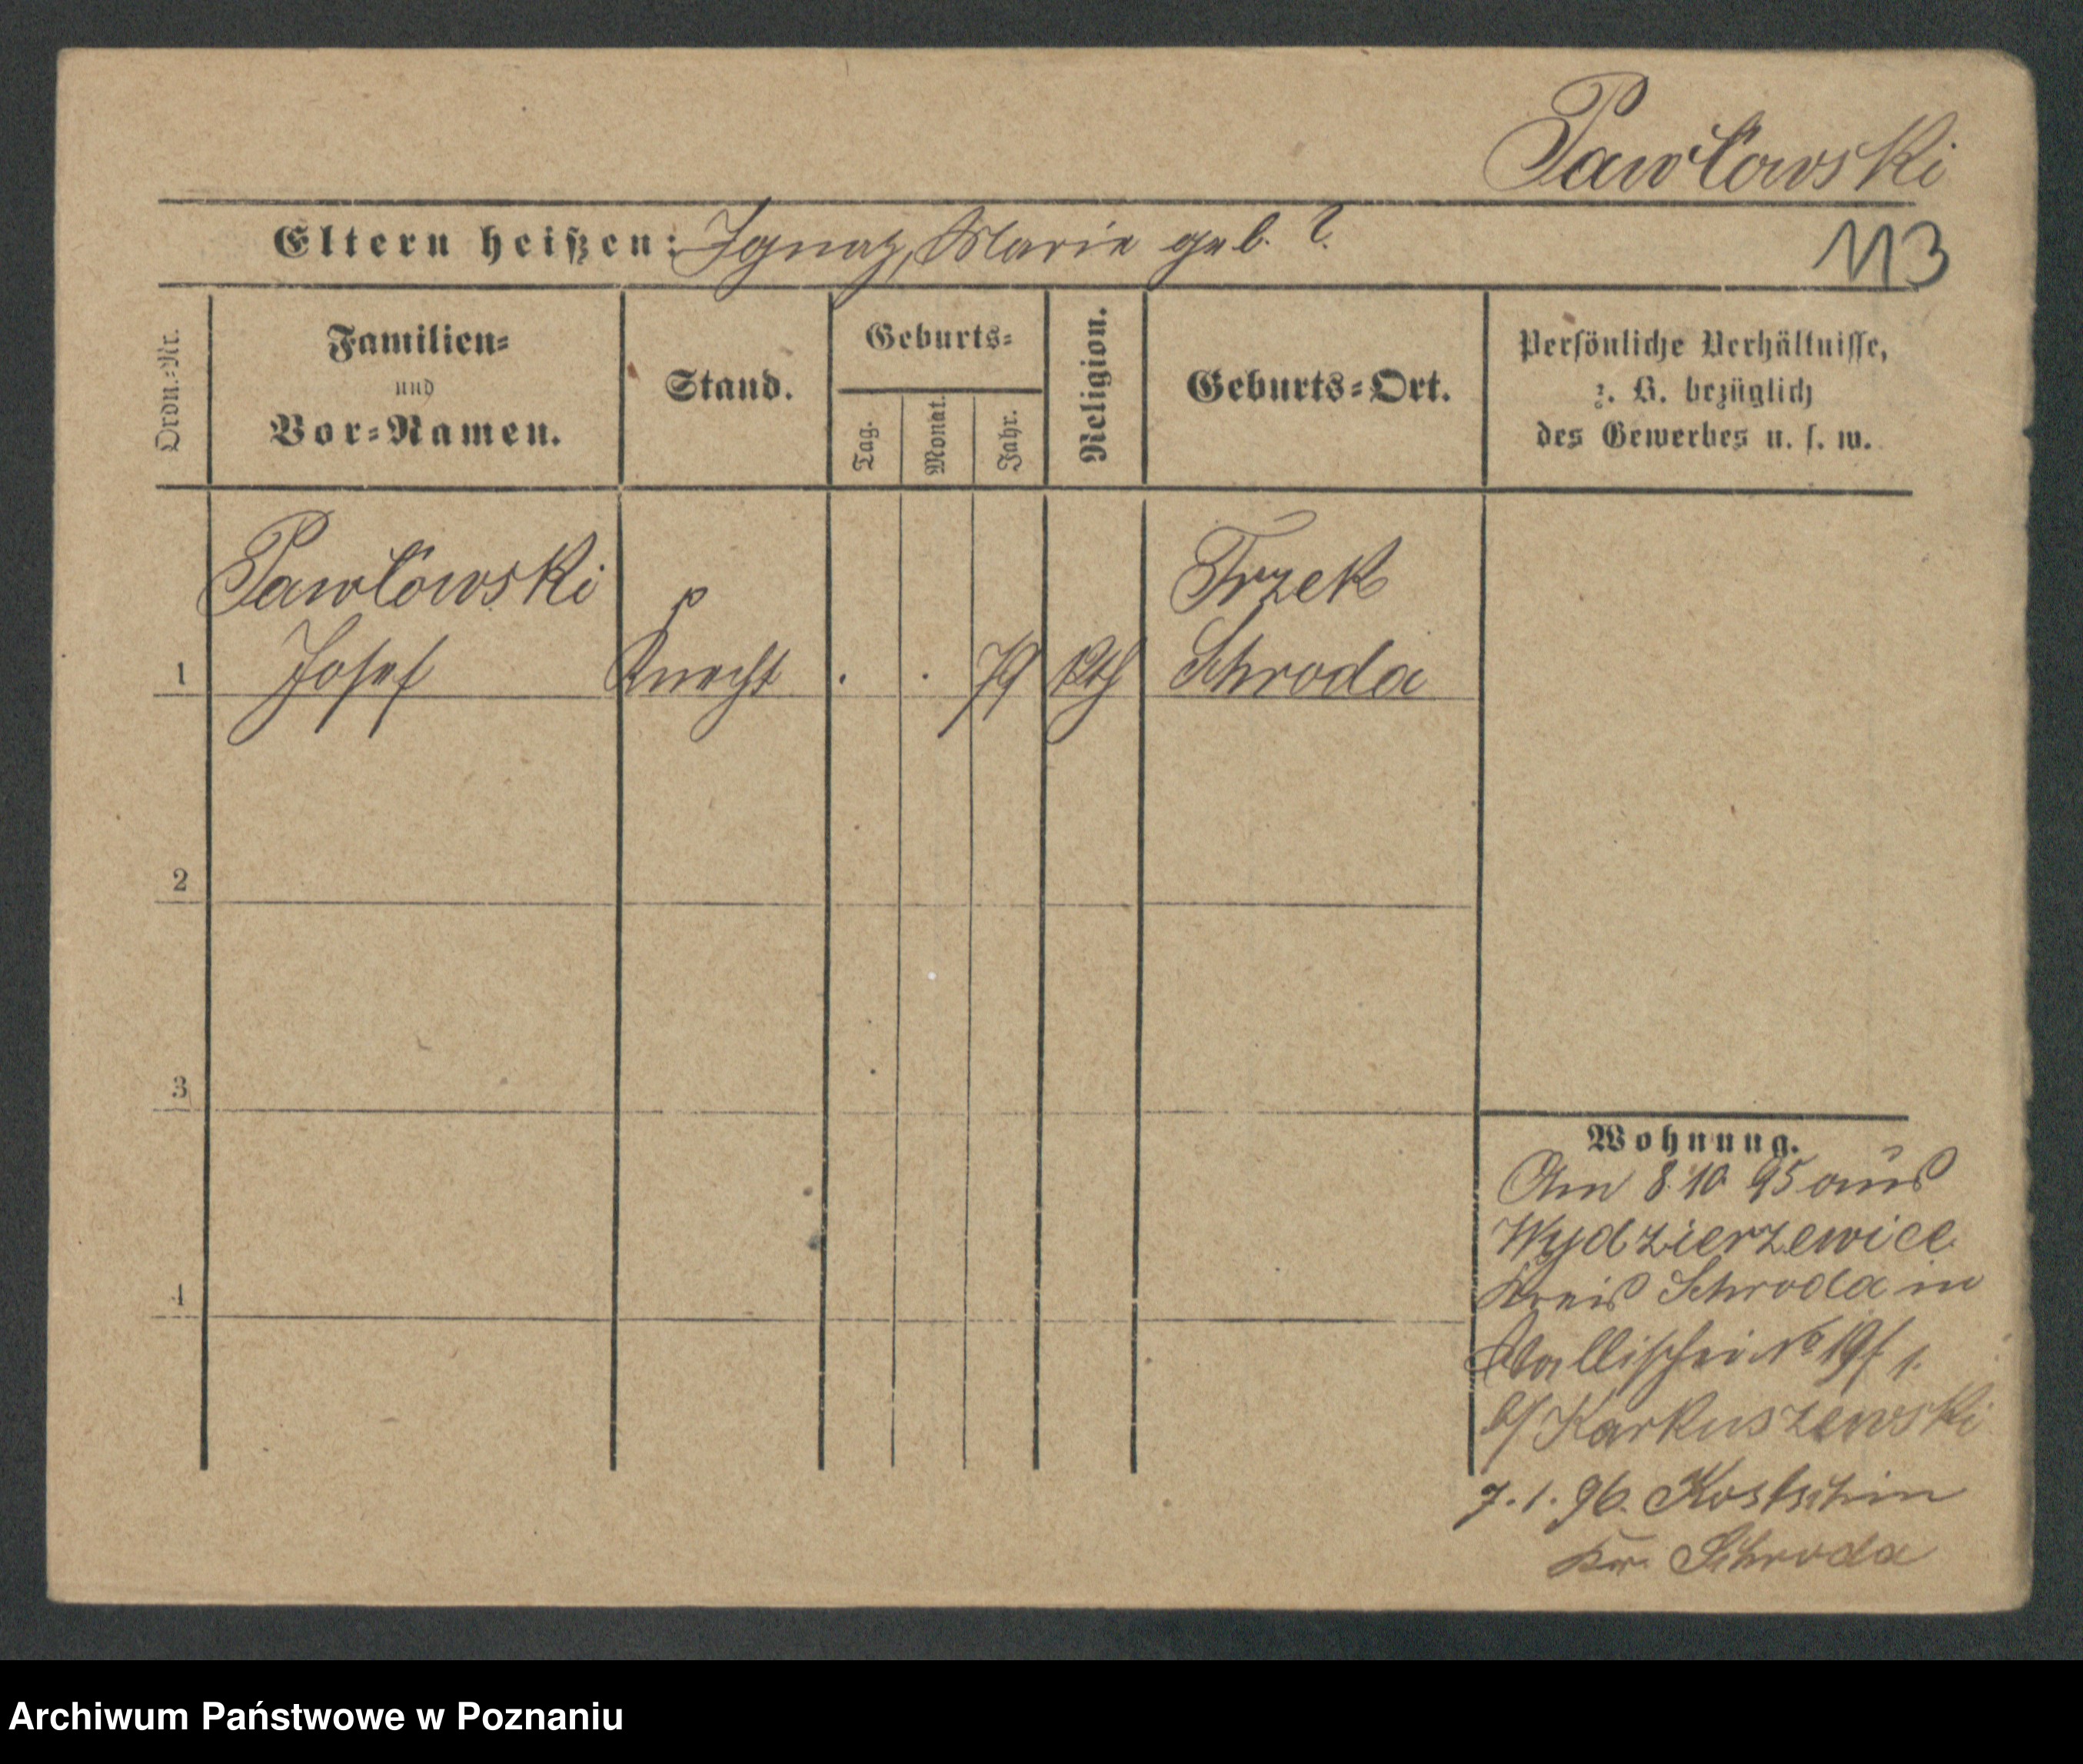 Pawłowski
Eltern heißen: Ignaz, Marie geb. ?
113
Ordn.=Nr.
Familien=
und
Vor=Namen.
Stand.
Geburts=
Tag.
Monat.
Jahr.
Religion.
Geburts=Ort.
Persönliche Verhältnisse,
z. B. bezüglich
des Gewerbes u. s. w.
Pawłowski
Josef
1
Knecht
.
.
79
Kth
Trzek
Schroda
2
3
4
Wohnung.
Am 8.10 95 aus
Wydzierzewice
Kreis Schroda in
Wallischei No 19/1.
b/ Karkuszewski
7.1.96. Kostschin
Kr. Schroda
Archiwum Państwowe w Poznaniu